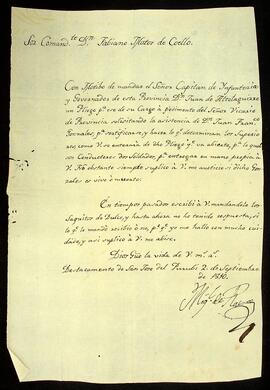 Sor. Comand.te Dn. Fabiano Flotor de Coello.
Con Motibo de mandar el Señor Capitan de Infanteria
y Governador de esta Provincia Dn. Juan de
un Pliego pr. ser de su Cargo à pedimento del Señor Vicario
de Provincia solicitando la asistencia de Dn. Juan Franco.
Gonzales, pa. certificarse, y hacer lo q. determinan los Superio-
res, como V. se enterarà de dho Pliego q. va adicto, pa. lo qual
se Conducen dos Soldados, pa. entregar en mano propia à
V. No obstante siempre suplico à V. me noticie, si dicho Gonza-
les es vivo ò muerto:
En tiempos pasados escribì à V. mandandole los
saquitos de Dulce, y hasta ahora no he tenido respuesta, si
lo q. le mandè recibiò ò no, pr. q. yo me hallo con mucho cui-
dado, y asi suplico à V. me abise.
Dios Gûe la vida de V. ms. as.
Destacamento de San Jose del 2 de Septiembre
de 1810.
Migl. de